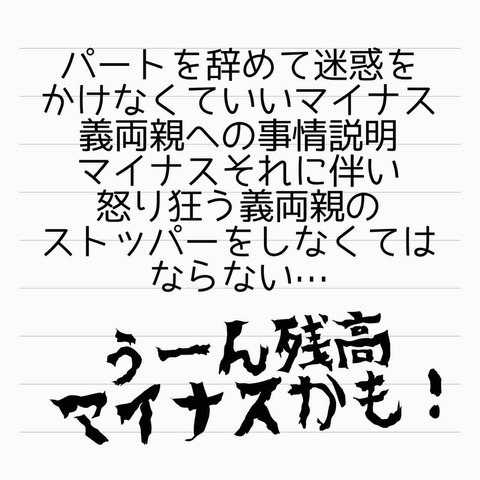 パートを辞めて迷惑を
かけなくていいマイナス
義両親への事情説明
マイナスそれに伴い
怒り狂う義両親の
ストッパーをしなくては
ならない…
うーん残高
マイナスかも!